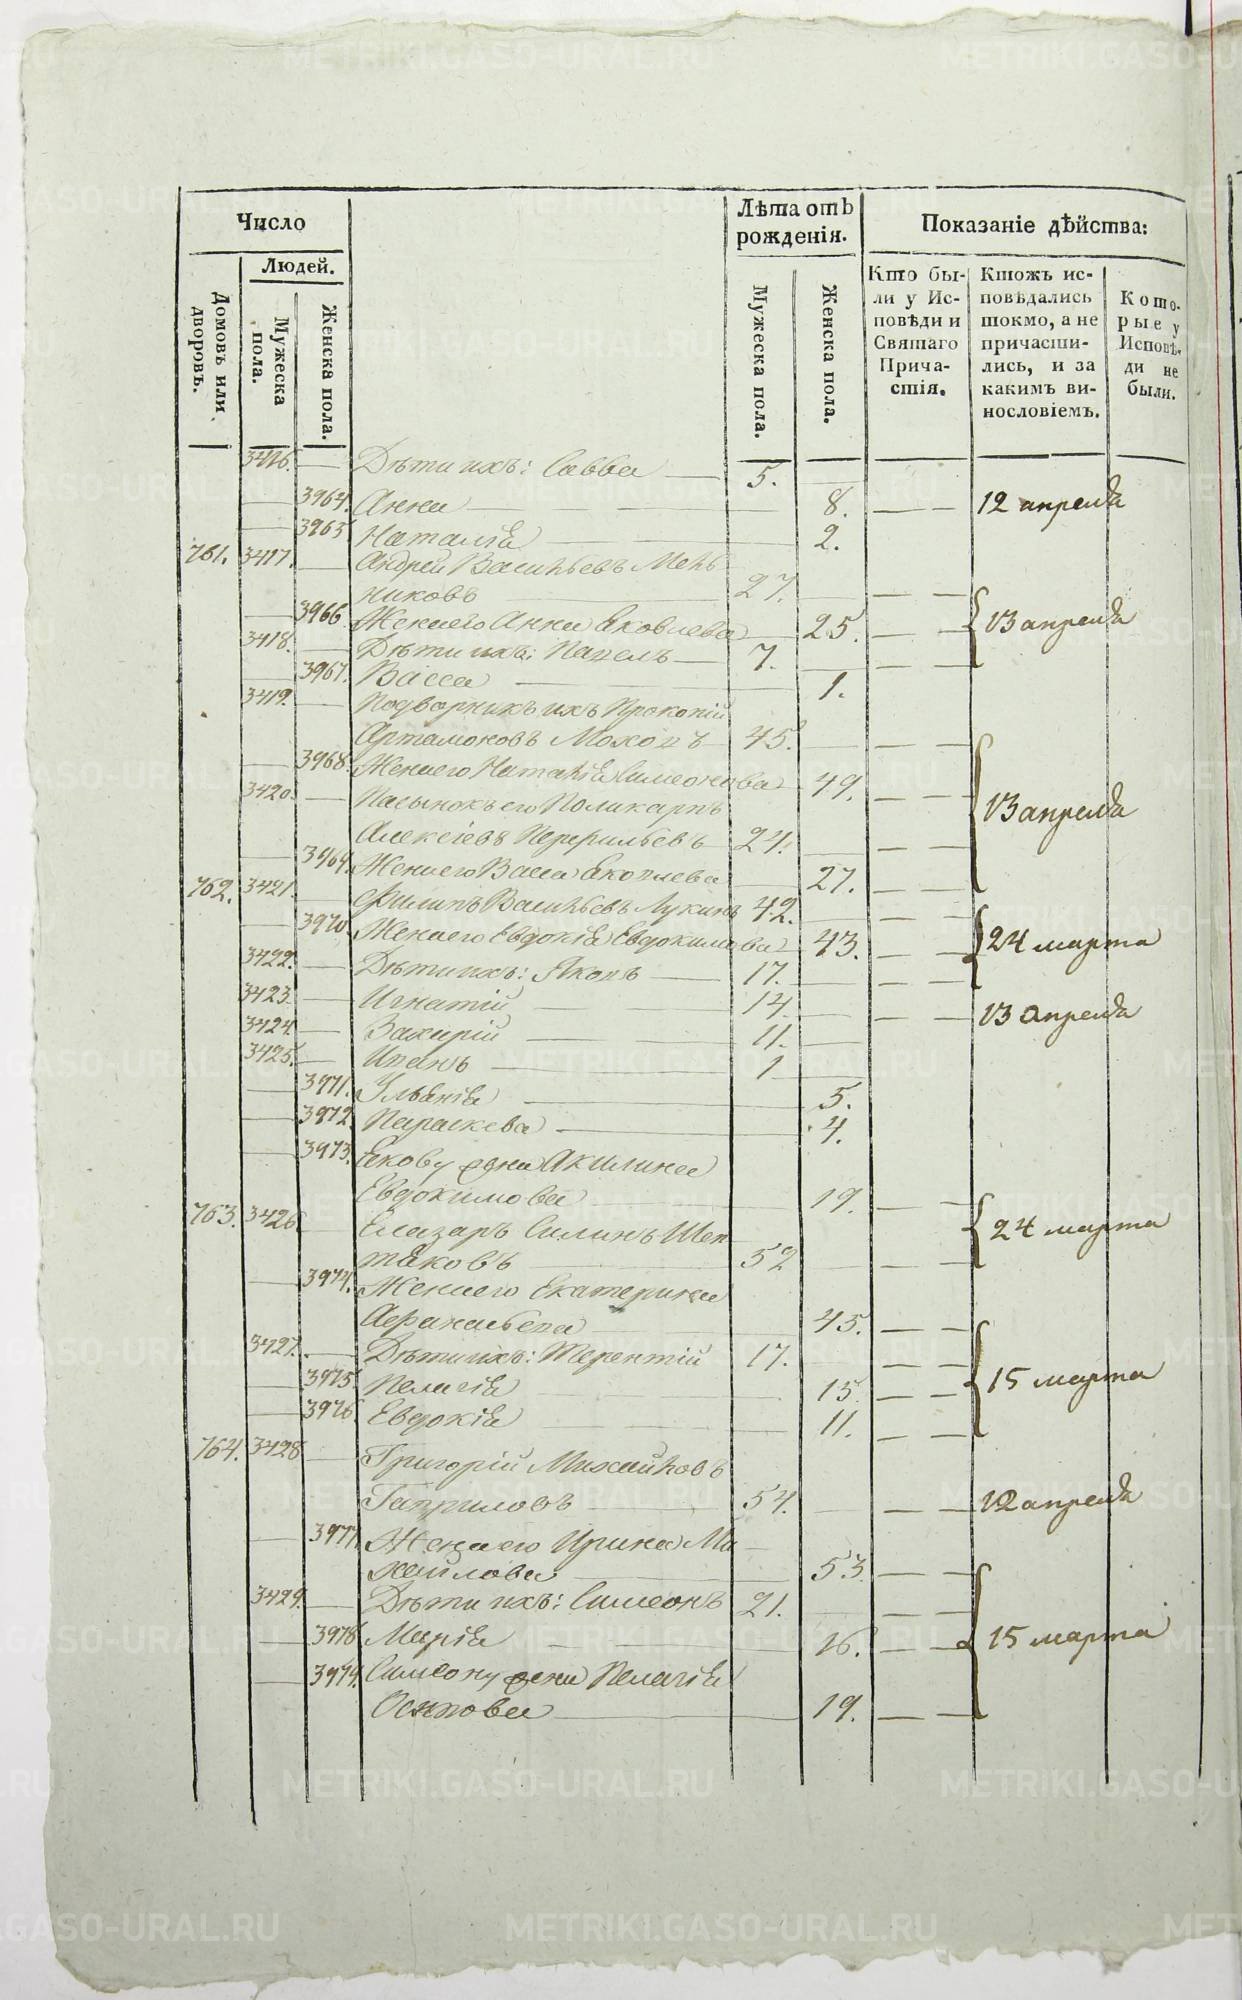 Число
Людей.
Домовъ или дворовъ.
Мужеска пола.
Женска пола.
Лѣта отъ рожденія.
Мужеска пола.
Женска пола.
Показаніе дѣйства:
Кто бы-
ли у Ис-
повѣди и
Святаго
Прича-
стія.
Ктожъ ис-
повѣдались
токмо, а не
причасти-
лись, и за
какимъ ви-
нословіемъ.
Кото-
рые у
Исповѣ-
ди не
были.
3416. Дѣти ихъ: Савва 5.
3964. Анна 8. 12 апреля
3965 Наталія 2.
761. 3417. Андрей Васильевъ Мель
никовъ 27.
3966 Жена его Анна Яковлева 25. 13 апреля
3418. Дѣти ихъ: Павелъ 7.
3967. Васса 1.
3419. Подворникъ ихъ Прокопій
Артамоновъ 45.
3968. Жена его Наталія Симеонова 49.
3420. Пасынокъ его Поликарпъ 13 апреля
Алексіевъ Перфильевъ 24.
3969. Жена его Васса Яковлева 27.
762. 3421. Филипъ Васильевъ Лукинъ 42.
3970 Жена его Евдокія Евдокимова 43. 24 марта
3422. Дѣти ихъ: Яковъ 17.
3423. Игнатій 14. 13 апреля
3424. Захарій 11.
3425. Иванъ 1
3971. Ульянія 5.
3972. Параскева 4.
3973. Якову жена Акилина
Евдокимова 19.
763. 3426. Елазаръ Силинъ Шеп 24 марта
таковъ 52
3974. Жена его Екатерина
Афанасьева 45.
3427. Дѣти ихъ: Терентій 17.
3975. Пелагія 15. 15 марта
3976 Евдокія 11.
764. 3428 Григорій Михайловъ
Гавриловъ 54. 12 апреля
3977. Жена его Ирина Ми
хайлова 53.
3429. Дѣти ихъ: Симеонъ 21.
3978. Марія 16. 15 марта
3979. Симеону жена Пелагія
Осипова 19.
METRIKI.GASO-URAL.RU